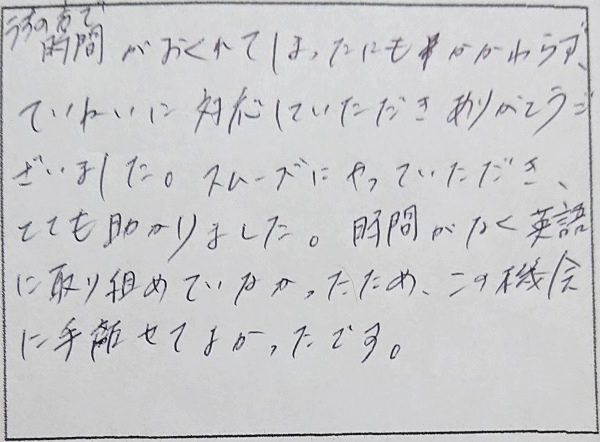 うちの方で
時間がおくれてしまったにもかかわらず、
ていねいに対応していただきありがとうご
ざいました。スムーズにやっていただき、
とても助かりました。時間がなく英語
に取り組めていなかったため、この機会
に手離せてよかったです。